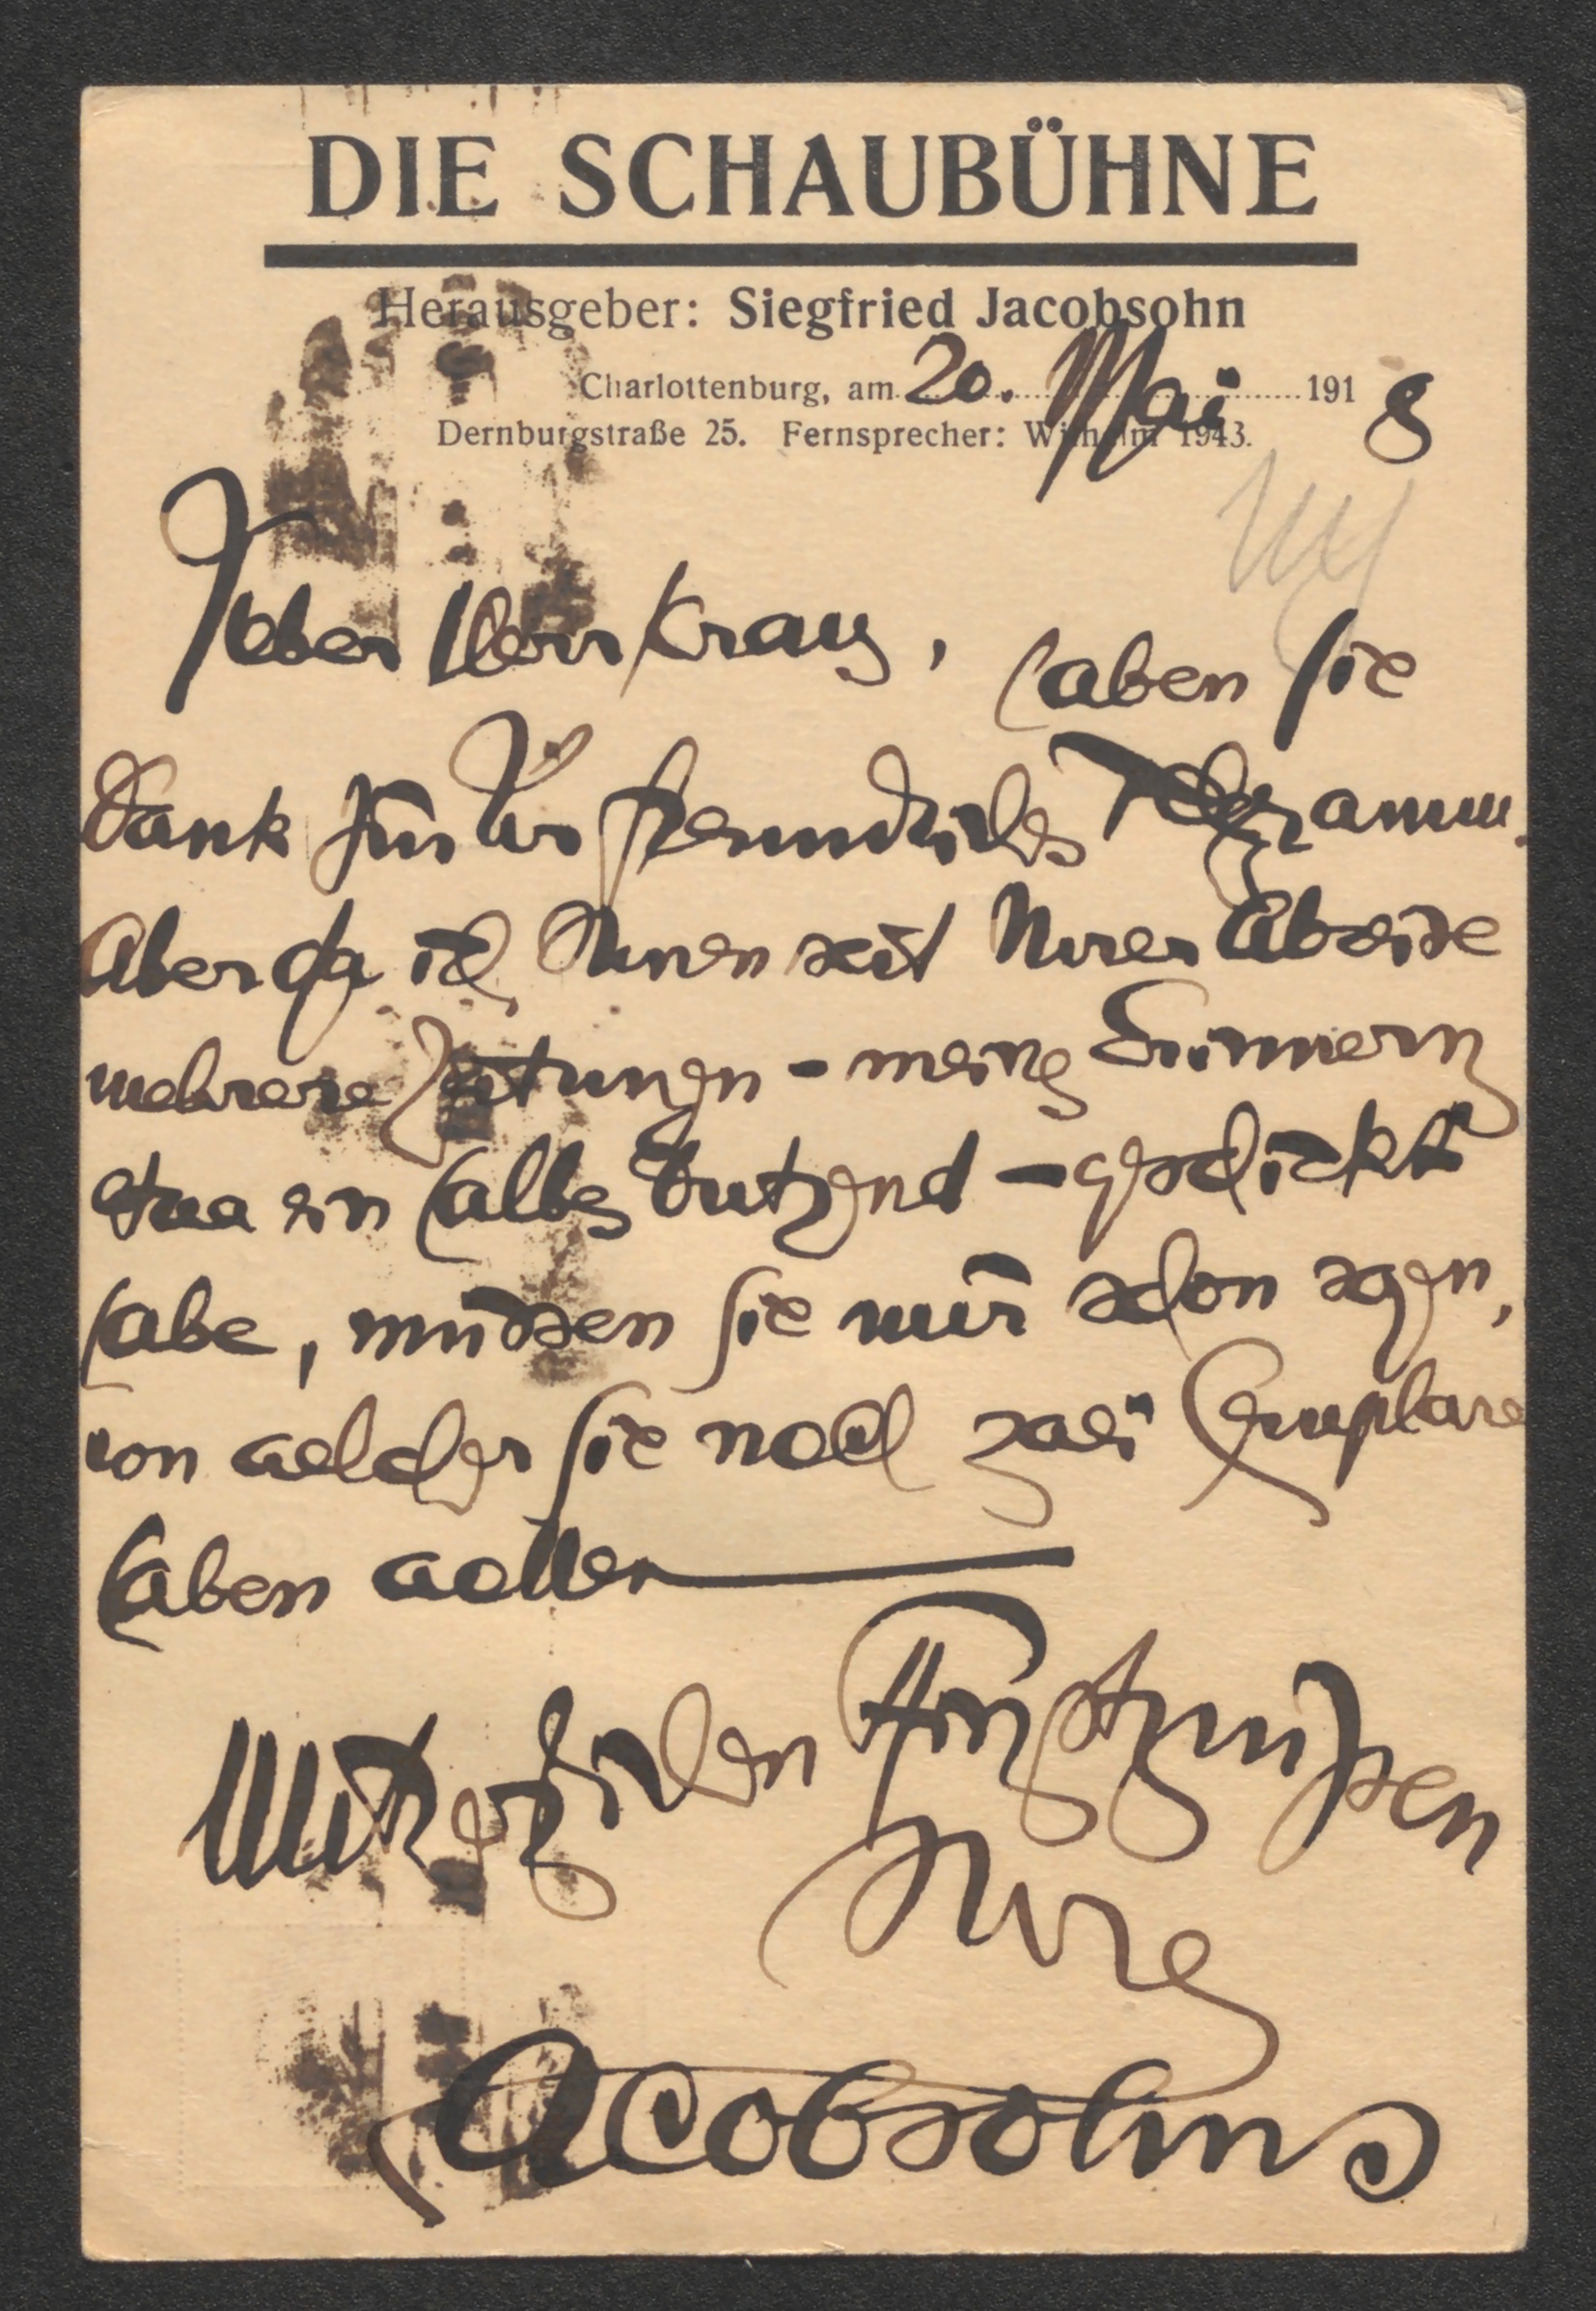 DIE SCHAUBÜHNE
Herausgeber: Siegfried Jacobsohn
Charlottenburg, am 20. Mai 1918
Dernburgstraße 25. Fernsprecher: Wilhelm 1943.
Lieber Herr Kraus, haben Sie
Dank für Ihr freundliches Telegramm.
Aber da ich Ihnen seit Ihrer Abreise
mehrere Zeitungen - meines Erinnerns
etwa ein halbes Dutzend - geschickt
habe, müssen Sie mir schon sagen,
von welcher Sie noch zwei Exemplare
haben wollen
Mit herzlichen Pfingstgrüßen
Ihr
Jacobsohn